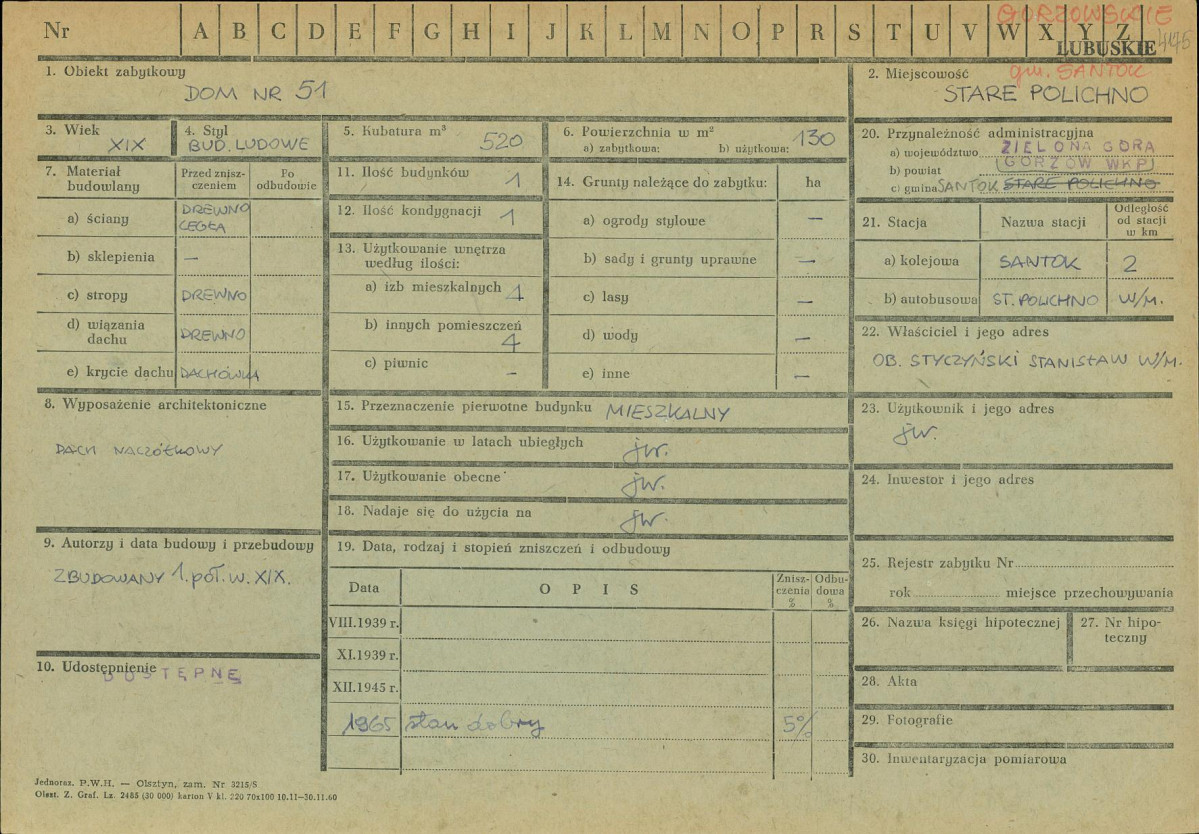 Nr A B C D E F G H I J K L M N O P R S T U V W X Y Z
GORZOWSKIE
LUBUSKIE 445
1. Obiekt zabytkowy
DOM NR 51
2. Miejscowość
gm. SANTOK
STARE POLICHNO
3. Wiek
XIX
4. Styl
BUD. LUDOWE
5. Kubatura m³
520
6. Powierzchnia w m²
a) zabytkowa: b) użytkowa: 130
20. Przynależność administracyjna
a) województwo ZIELONA GÓRA
b) powiat (GORZÓW WKP)
c) gmina SANTOK STARE POLICHNO
7. Materiał budowlany
Przed zniszczeniem
Po odbudowie
a) ściany DREWNO CEGŁA
b) sklepienia —
c) stropy DREWNO
d) wiązania dachu DREWNO
e) krycie dachu DACHÓWKA
11. Ilość budynków 1
12. Ilość kondygnacji 1
13. Użytkowanie wnętrza według ilości:
a) izb mieszkalnych 4
b) innych pomieszczeń 4
c) piwnic –
14. Grunty należące do zabytku: ha
a) ogrody stylowe —
b) sady i grunty uprawne —
c) lasy —
d) wody —
e) inne —
21. Stacja Nazwa stacji Odległość od stacji w km
a) kolejowa SANTOK 2
b) autobusowa ST. POLICHNO W/M.
22. Właściciel i jego adres
OB. STYCZYŃSKI STANISŁAW W/M.
8. Wyposażenie architektoniczne
DACH NACZÓŁKOWY
15. Przeznaczenie pierwotne budynku MIESZKALNY
16. Użytkowanie w latach ubiegłych jw.
17. Użytkowanie obecne jw.
18. Nadaje się do użycia na jw.
23. Użytkownik i jego adres
jw.
24. Inwestor i jego adres
9. Autorzy i data budowy i przebudowy
ZBUDOWANY 1. poł. w. XIX.
19. Data, rodzaj i stopień zniszczeń i odbudowy
Data OPIS Zniszczenia % Odbudowa %
VIII.1939 r.
XI.1939 r.
XII.1945 r.
1965 stan dobry 5%
25. Rejestr zabytku Nr
rok miejsce przechowywania
26. Nazwa księgi hipotecznej
27. Nr hipoteczny
10. Udostępnienie
DOSTĘPNE
28. Akta
29. Fotografie
30. Inwentaryzacja pomiarowa
Jednoraz. P.W.H. — Olsztyn, zam. Nr 3215/S
Olszt. Z. Graf. Lz. 2485 (30 000) karton V kl. 220 70x100 10.11—30.11.60